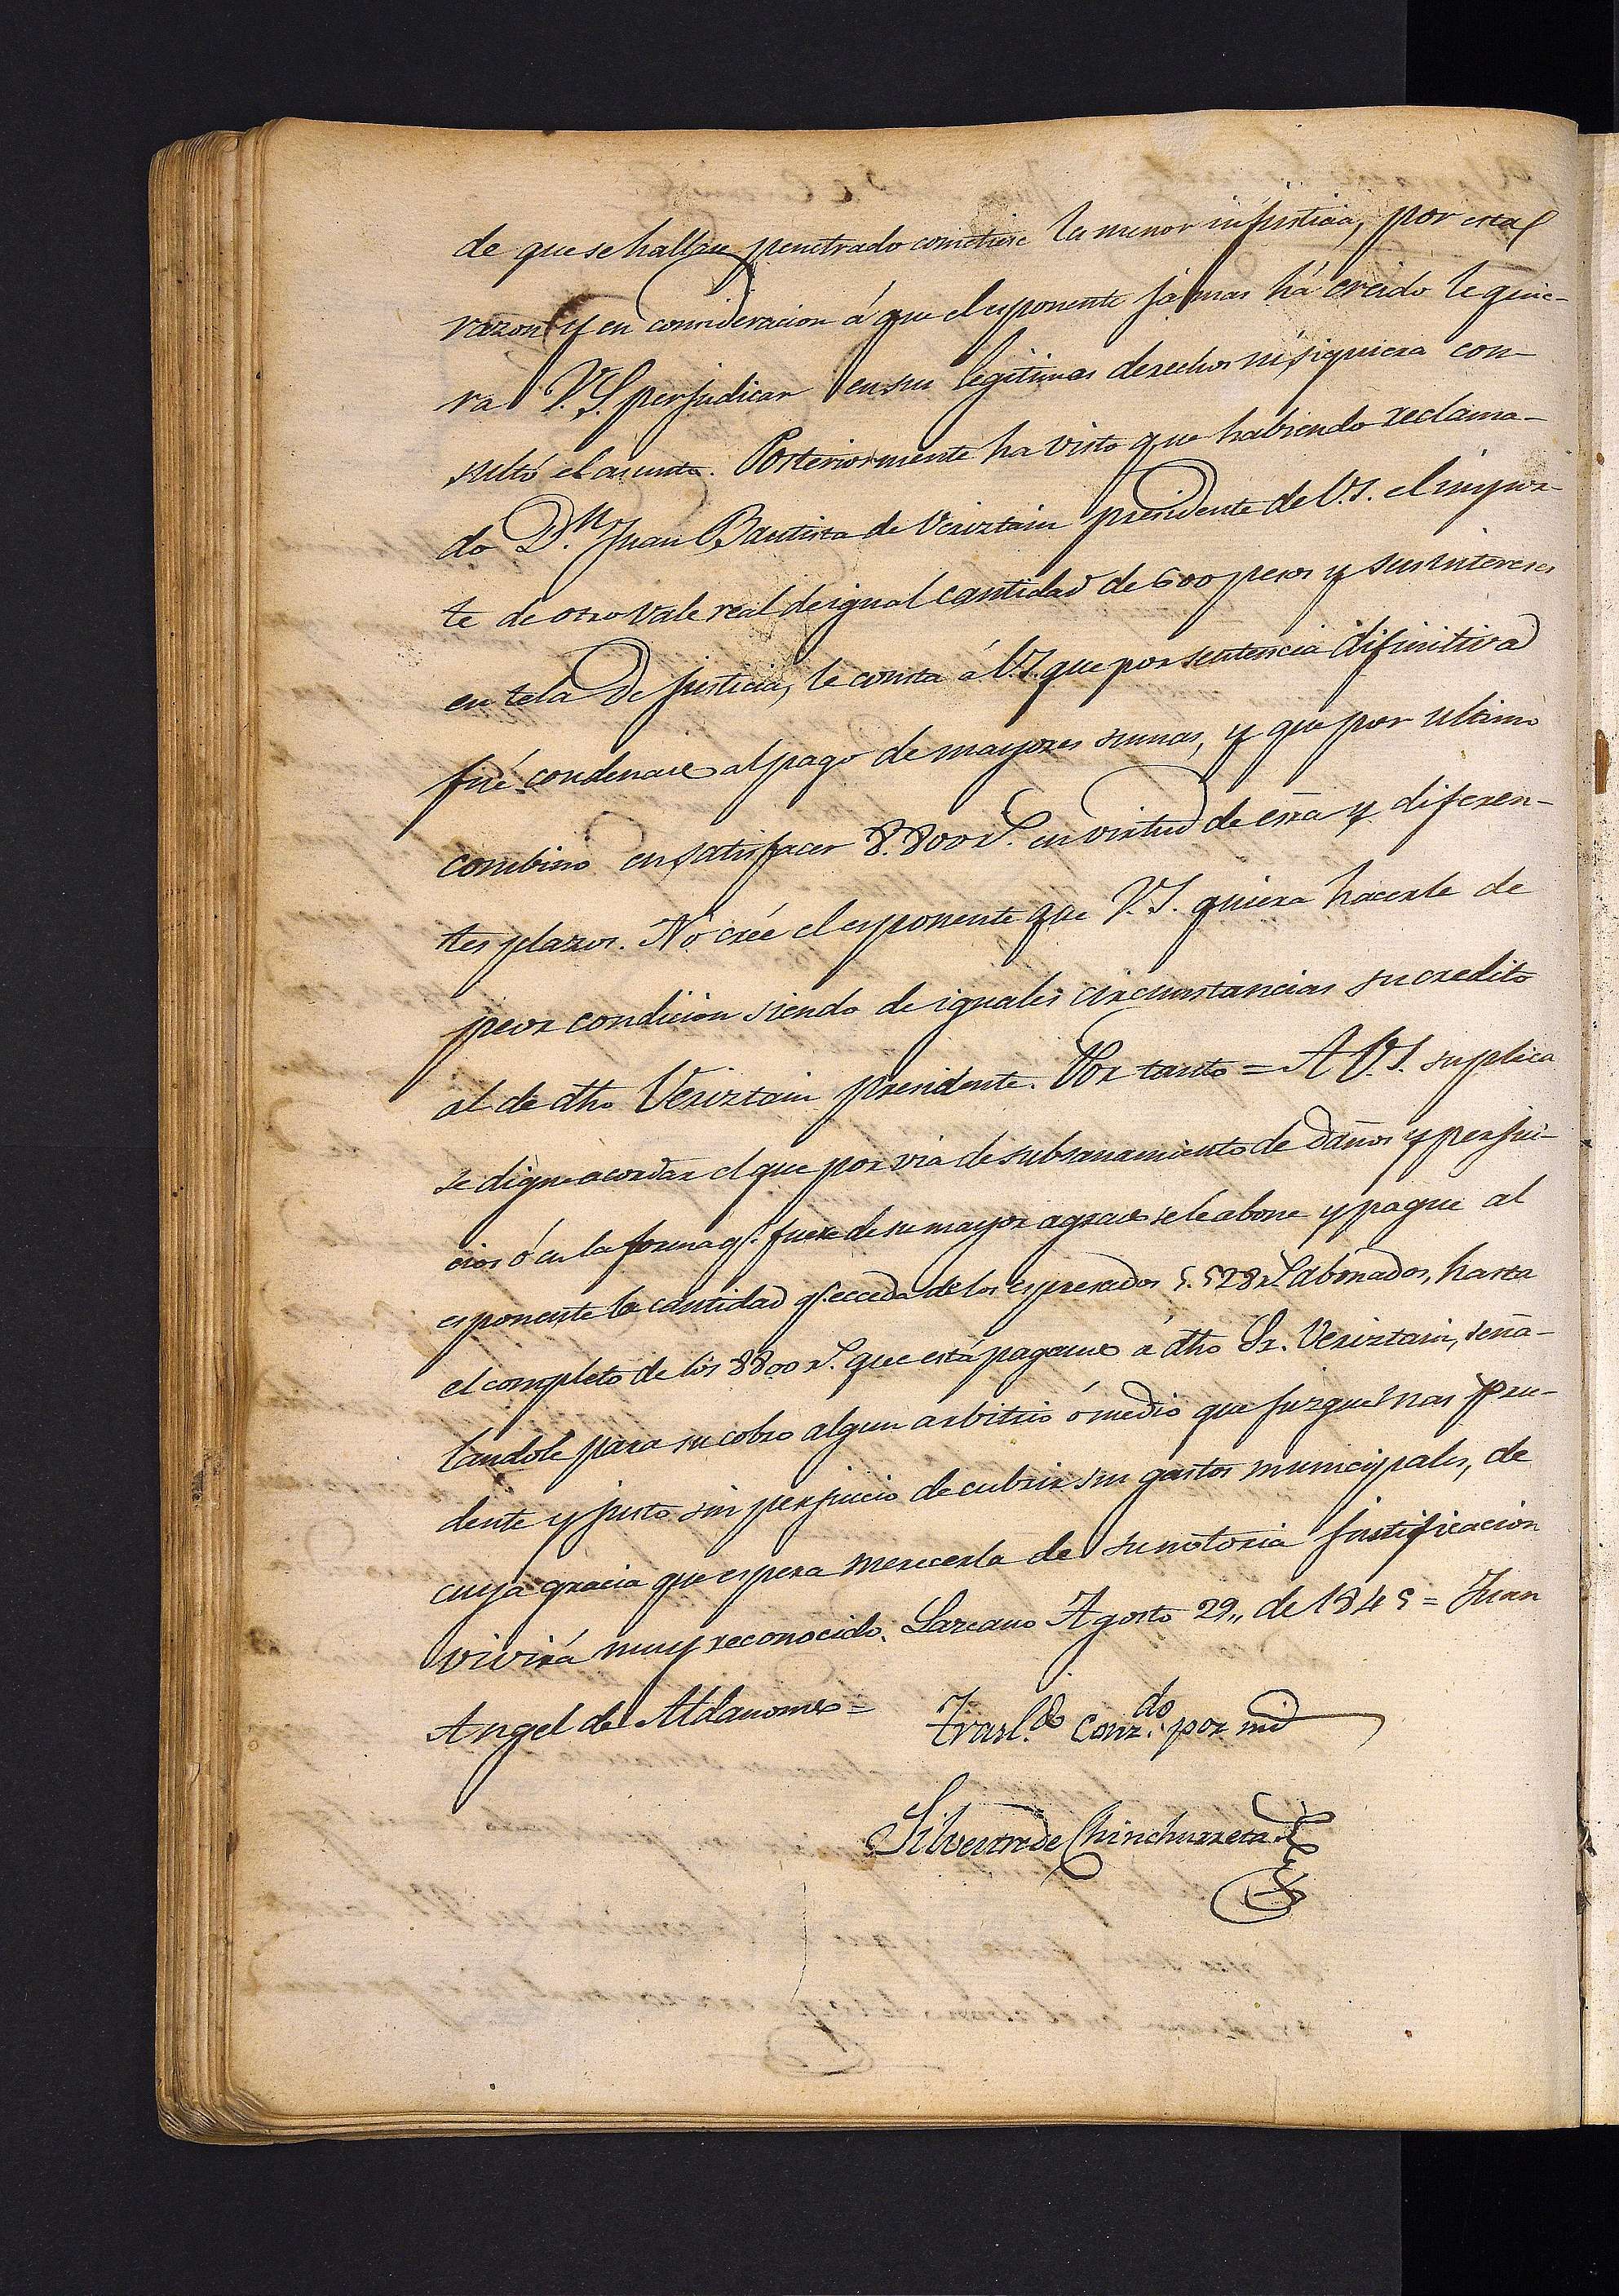 de que se hallava penetrado cometiese la menor injusticia, por esta
razon y en consideracion á que el esponente jamas há creido le quie-
ra V.S. perjudicar en sus legitimos derechos ni siquiera con-
sultó el asunto. Posteriormente ha visto que habiendo reclama-
do D.n Juan Bautista de Veriztain presidente de V.S. el impor-
te de otro vale real de igual cantidad de 600 pesos y sus intereses
en tela de justicia, le consta á V.S. que por sentencia difinitiva
fué condenase al pago de mayores sumas, y que por ultimo
combino en satisfacer 8.800 r.s en virtud de esta y diferen-
tes plazos. Nó creé el esponente que V.S. quiera hacerle de
peor condicion siendo de iguales circunstancias su credito
al de dho Veriztain presidente. Por tanto = A V.S. suplica
se digne acordar el que por via de subsanamiento de daños y perjui-
cios ó en la forma q.e fuere de su mayor agrado se le abone y pague al
esponente la cantidad q.e esceda de los espresados 5.528 r.s abonados, hasta
el completo de los 8800 r.s que está pagando á dho Sr. Veriztain, seña-
landole para su cobro algun arbitrio ó medio que juzgue mas pru-
dente y justo sin perjuicio de cubrir sus gastos municipales, de
cuya gracia que espera merecerla de su notoria justificacion
vivirá muy reconocido. Lazcano Agosto 29,, de 1845 = Juan
Angel de Aldanondo =
Trasl.do Conz.do por mi
Silvestre de Chinchurreta